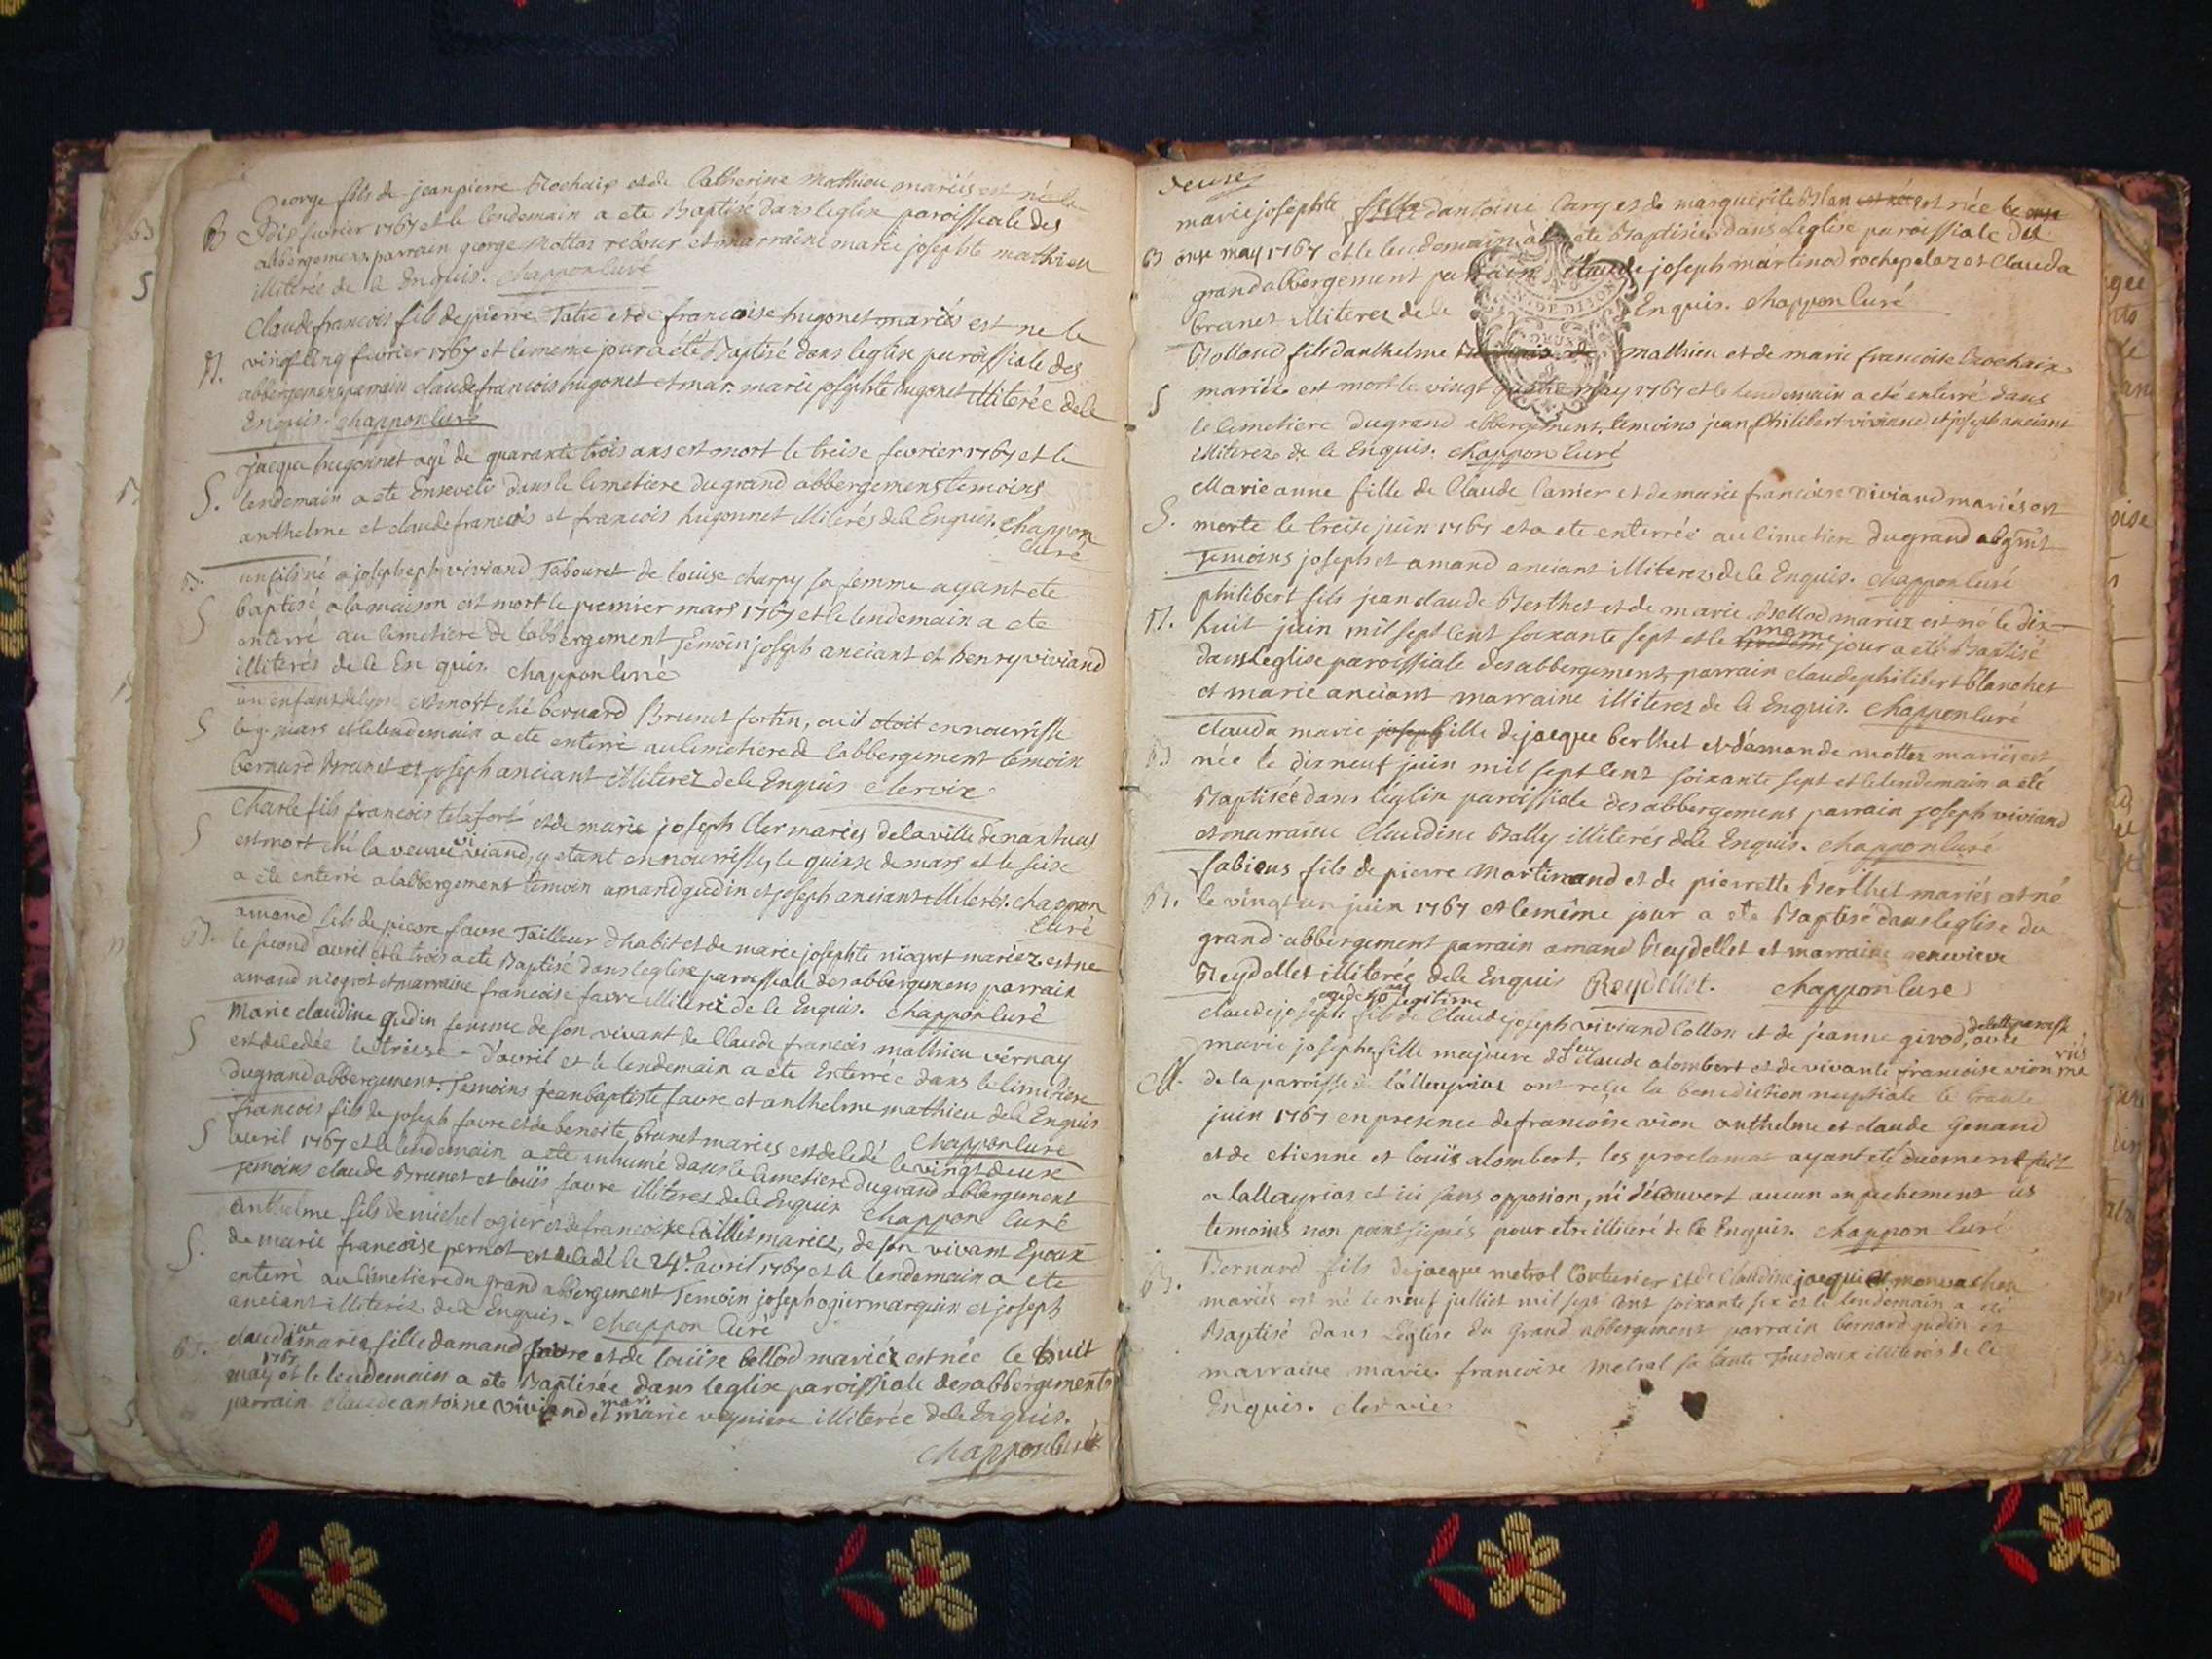 George fils de jeanpierre Rochaix et de Catherine Mathieu mariés est né le
B Dix fevrier 1767 et le lendemain a ete Baptisé dans leglise paroissiale des
abbergemens parrain george Mottas rebour et marraine marie josephte mathieu
illiterés de le Enquis. Chappon Curé
Claudefrancois fils de pierre Tatre et de francoise hugonet mariés est ne le
B. vingt cinq fevrier 1767 et le meme jour a été Baptisé dans leglise paroissiale des
abbergemens parrain claudefrancois hugonet et mar. marie josephte hugonet illiterée de le
Enquis. chappon curé
jacque hugonnet agé de quarante trois ans est mort le treise fevrier 1767 et le
S. lendemain a ete Enseveli dans le Cimetiere du grand abbergemens temoins
anthelme et claudefrancois et francois hugonnet illiterés de le Enquis. Chappon
curé
B. un fils né a josephseph viviand Tabouret de louise charpy sa femme ayant ete
S baptisé a la maison est mort le premier mars 1767 et le lendemain a ete
enterré au Cimetiere de labbergement Temoin joseph anciant et henry viviand
illiterés de le En quis. Chappon Curé
un enfant de lyon est mort ché bernard Brunet fortin, ou il etoit en nourrisse
S le 9. mars et le lendemain a ete enterré au Cimetiere de labbergement temoin
bernard Brunet et joseph anciant illiterez de le Enquis
Charle fils francois telafort et de marie joseph Cler mariés de la ville de nantuas
S est mort ché la veuve viviand, y etant en nourrisse, le quinse de mars et le seise
a ete enterré a labbergement temoin amand gudin et joseph anciant illiterés. chappon
Curé
amand fils de pierre favre Tailleur dhabit et de marie josephte niogret mariez est ne
B. le second avril et le trois a ete Baptisé dans leglise paroissiale des abbergemens parrain
amand niogret et marraine francoise favre illiterez de le Enquis. Chappon Curé
Marie claudine gudin femme de son vivant de Claude francois mathieu vernay
S est decedée le treise - d'avril et le lendemain a ete Enterrée dans le cimetiere
du grand abbergement. Temoins jeanbaptiste favre et anthelme mathieu de le Enquis
Chappon Cure
francois fils de joseph favre et de benoite brunet mariés est decedé le vingt deuse
S avril 1767 et le lendemain a ete inhumé dans le Cimetiere du grand abbergement
temoins claude Brunet et louis favre illiterez de le Enquis Chappon Curé
anthelme fils de michel ogier et de francoise mariez, de son vivant Epoux
S. de marie francoise pernot est decedé le 24e. avril 1767 et le lendemain a ete
enterré au Cimetiere du grand abbergement Temoin joseph ogier marquin et joseph
anciant illiterés de le Enquis. Chappon Curé
B. claudine marie fille damand favre et de louise bellod mariéz est née le huit
may 1767 et le lendemain a ete Baptisée dans leglise paroissiale des abbergements
parrain Claude antoine viviand et mar. marie veyniere illiterée de le Enquis.
chappon Curé
deuse
marie josephte fille dantoine Cary et de marguerite est née le onse
B onse may 1767 et le lendemain a ete Baptisée dans leglise paroissiale du
grand abbergement parrain claude joseph martinod rochepelaz et Clauda
brunet illiterez de le Enquis. Chappon Curé
DE DIJON
Rolland fils danthelme mathieu et de marie francoise Rochaix
S mariés est mort le vingt quatre may 1767 et le lendemain a eté enterré dans
le Cimetiere du grand abbergement. temoins jean philibert viviand et joseph anciant
illiterez de le Enquis. Chappon Curé
Marie anne fille de Claude Carrier et de marie francoise viviand mariés est
S. morte le treise juin 1767 et a ete enterrée au Cimetiere du grand
Temoins joseph et amand anciant illiterez de le Enquis. Chappon Curé
philibert fils jean claude Berthet et de marie Bellod mariez est né le dix
B. huit juin mil sept cent soixante sept et le meme jour a eté Baptisé
dans leglise paroissiale des abbergemens parrain claude philibert Blanchet
et marie anciant marraine illiterez de le Enquis. Chappon Curé
clauda marie joseph fille de jacque berthet et damande mottez mariés est
B née le dix neuf juin mil sept cent soixante sept et le lendemain a eté
Baptisée dans léglise paroissiale des abbergemens parrain joseph viviand
et marraine Claudine Bally illiterés de le Enquis. Chappon Cure
fabieus fils de pierre Martinand et de pierrette Berthet mariés est né
B. le vingt un juin 1767 et le même jour a ete Baptisé dans leglise du
grand abbergement parrain amand Reydellet et marraine genevieve
Reydellet illiterée de le Enquis Reydellet. Chappon Cure
claudejoseph legitime fils de Claudejoseph viviand Collon et de jeanne givod, de cette paroisse avec
marie josephe fille majeure de feu claude alombert et de vivante francoise vion mariés
M. de la paroisse de lalleyriat ont reçu la benediction nuptiale le trente
juin 1767 en presence de francoise vion anthelme et claude Genand
et de etienne et louis alombert, les proclamas ayant eté duement fait
a lalleyrias et ici sans opposion, ni découvert aucun enpechement les
temoins non point signés pour etre illiteré de le Enquis. Chappon Curé
B. Bernard fils de jacque metral Couturier et de Claudine jacqui
mariés est né le neuf julliet mil sept cent soixante six et le lendemain a eté
Baptisé dans Leglise du Grand abbergement parrain bernard gudin et
marraine marie francoise metral sa tante Tous deux illiterés de le
Enquis.